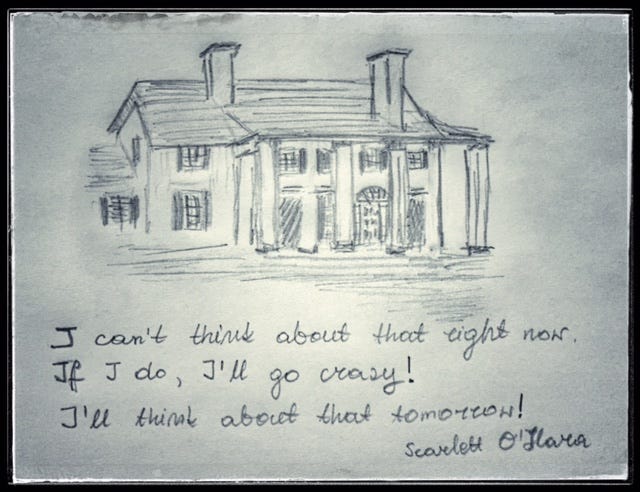 I can't think about that right now.
If I do, I'll go crazy!
I'll think about that tomorrow!
Scarlett O'Hara